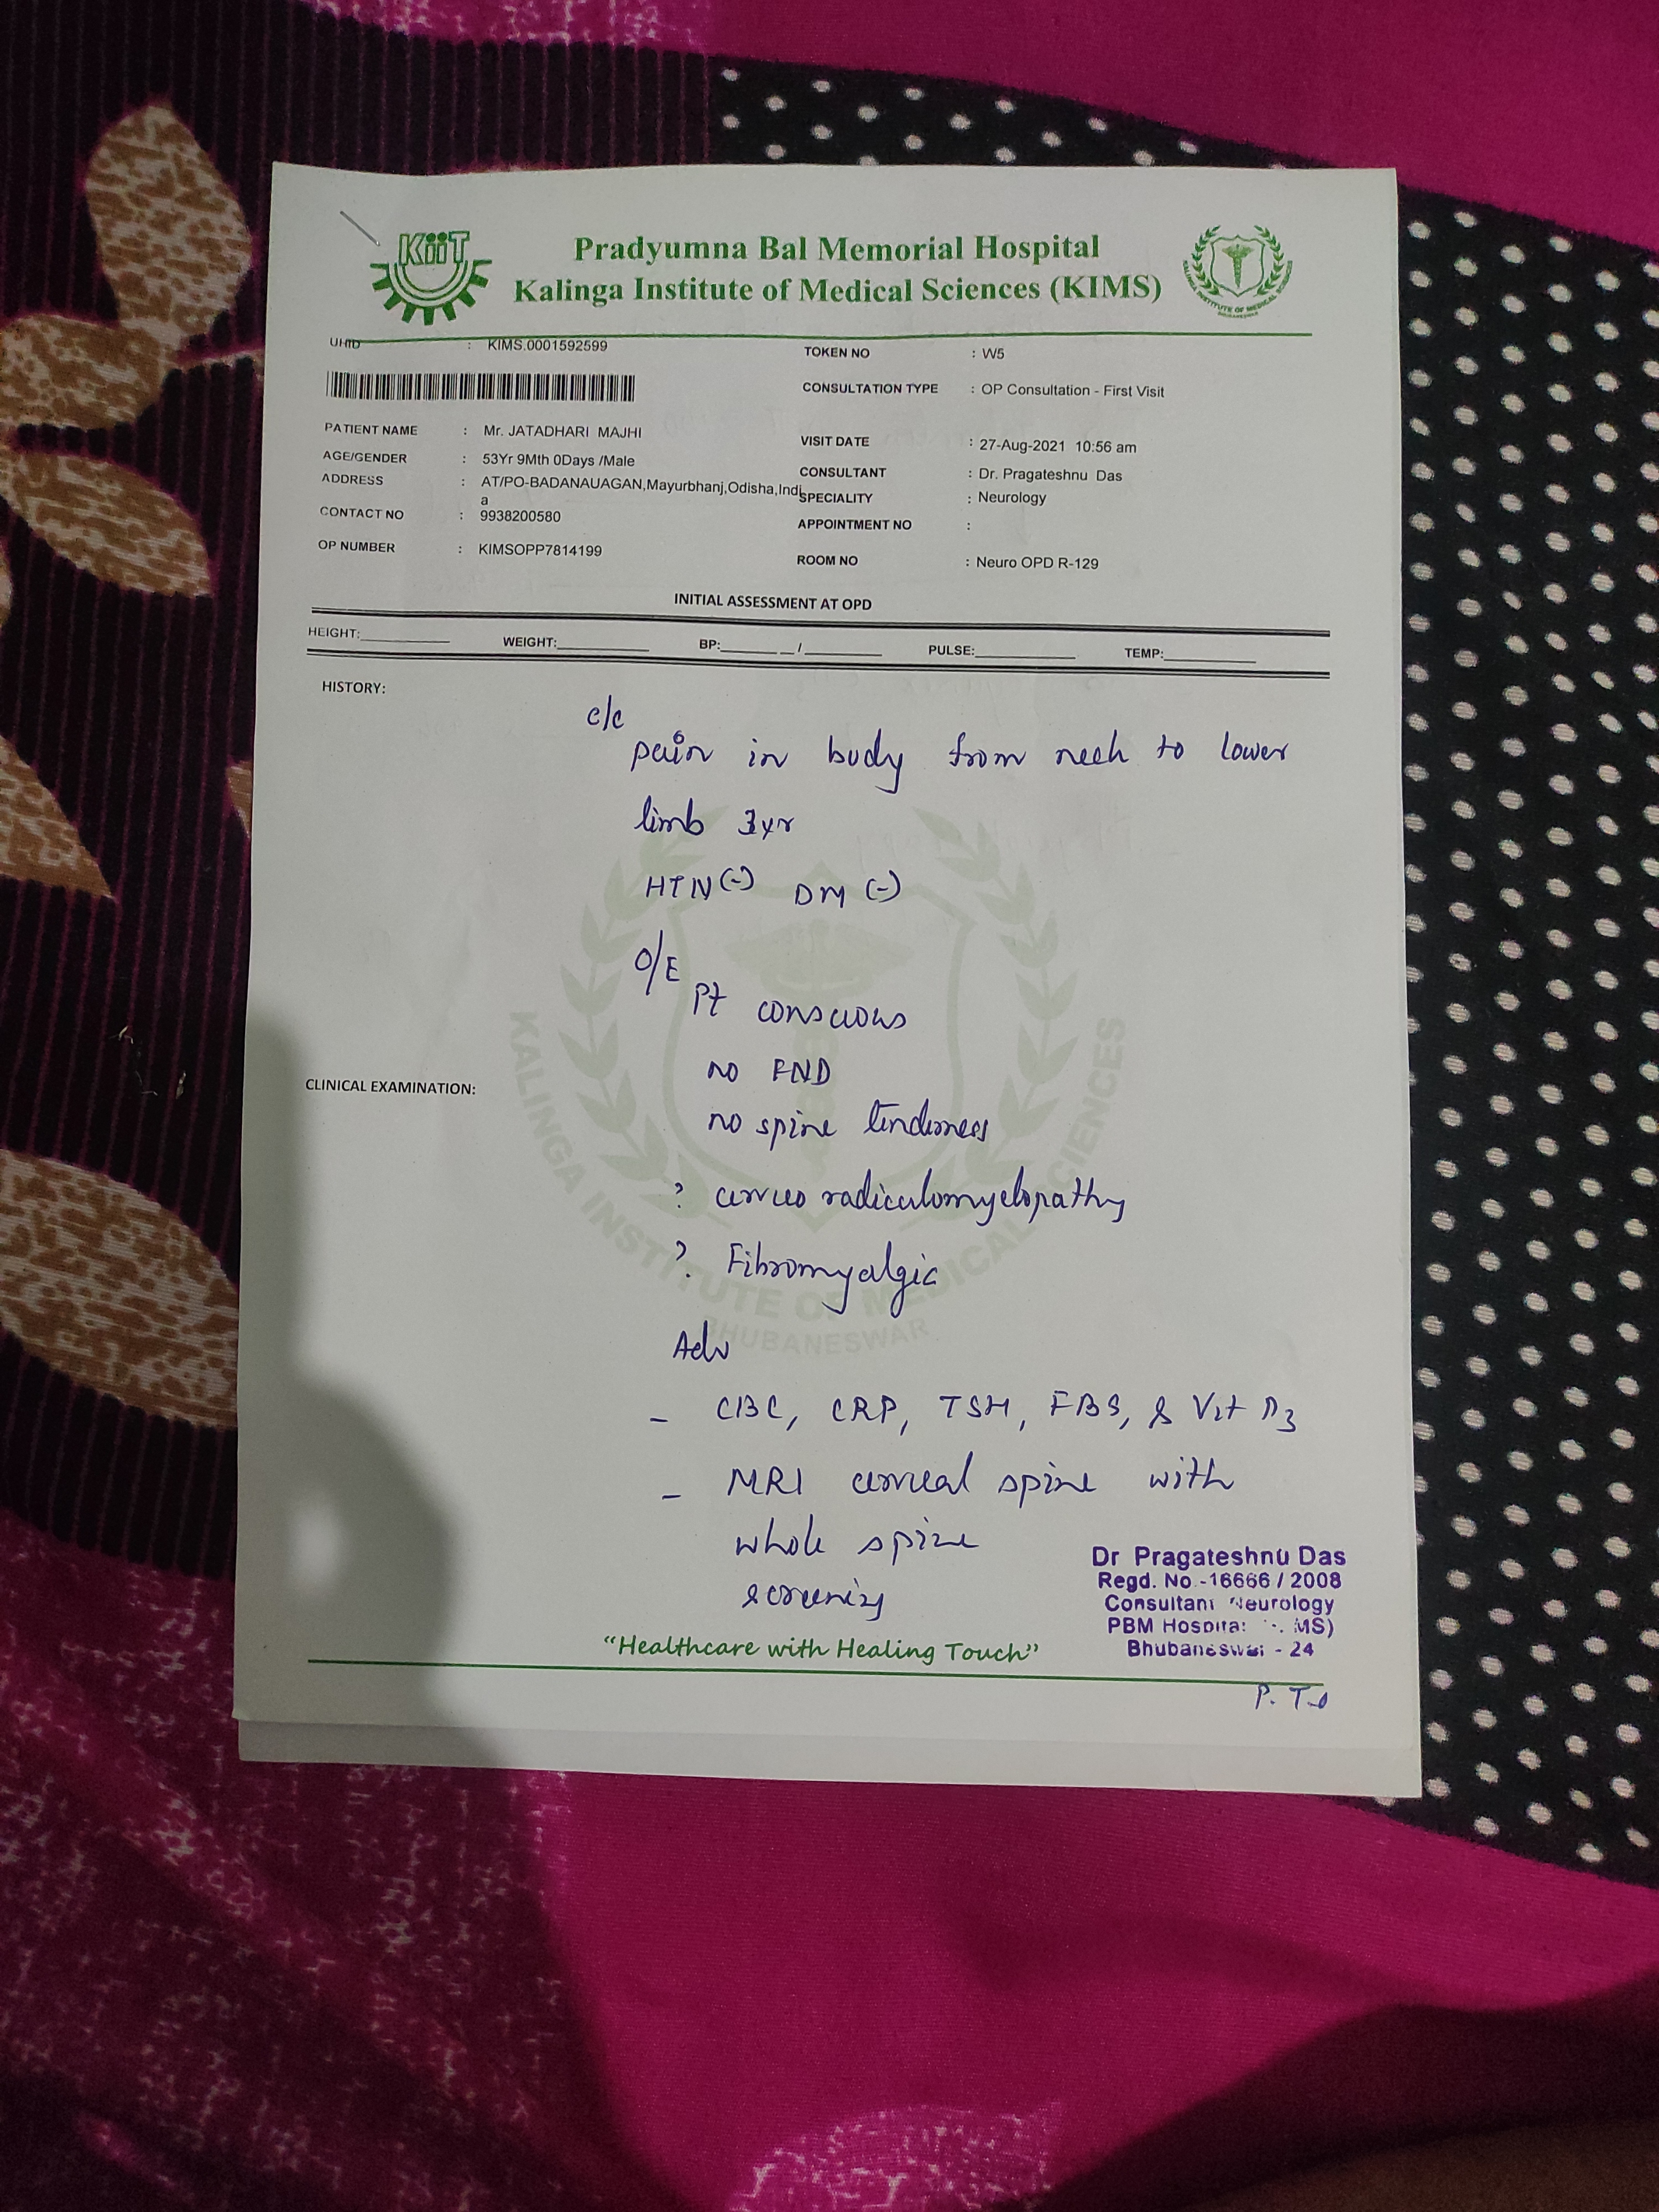 KiiT
Pradyumna Bal Memorial Hospital
Kalinga Institute of Medical Sciences (KIMS)
KALINGA INSTITUTE OF MEDICAL SCIENCES
BHUBANESWAR
UHID : KIMS.0001592599
TOKEN NO : W5
CONSULTATION TYPE : OP Consultation - First Visit
PATIENT NAME : Mr. JATADHARI MAJHI
VISIT DATE : 27-Aug-2021 10:56 am
AGE/GENDER : 53Yr 9Mth 0Days /Male
CONSULTANT : Dr. Pragateshnu Das
ADDRESS : AT/PO-BADANAUAGAN,Mayurbhanj,Odisha,Indi
a
SPECIALITY : Neurology
CONTACT NO : 9938200580
APPOINTMENT NO :
OP NUMBER : KIMSOPP7814199
ROOM NO : Neuro OPD R-129
INITIAL ASSESSMENT AT OPD
HEIGHT:________ WEIGHT:________ BP:______ __/________ PULSE:________ TEMP:________
HISTORY:
c/c
pain in body from neck to lower
limb 3yr
HTN (-) DM (-)
O/E
Pt conscious
no FND
CLINICAL EXAMINATION:
no spine tenderness
? cervico radiculomyelopathy
? Fibromyalgic
Adv
- CBC, CRP, TSH, FBS, & Vit D3
- MRI cervical spine with
whole spine
screening
Dr Pragateshnu Das
Regd. No.-16666 / 2008
Consultant Neurology
PBM Hospital MS)
Bhubaneswar - 24
"Healthcare with Healing Touch"
P.T.O
KALINGA INSTITUTE OF MEDICAL SCIENCES
BHUBANESWAR